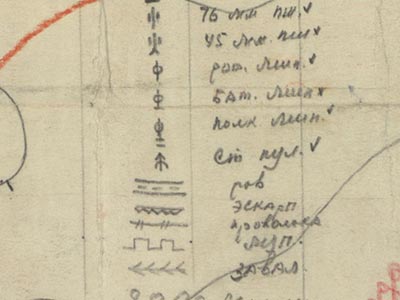 76 мм пш.
45 мм. пш
рот. мин.
бат. мин
полк мин.
ст пул.
ров
эскарп
проволока
МЗП.
завал